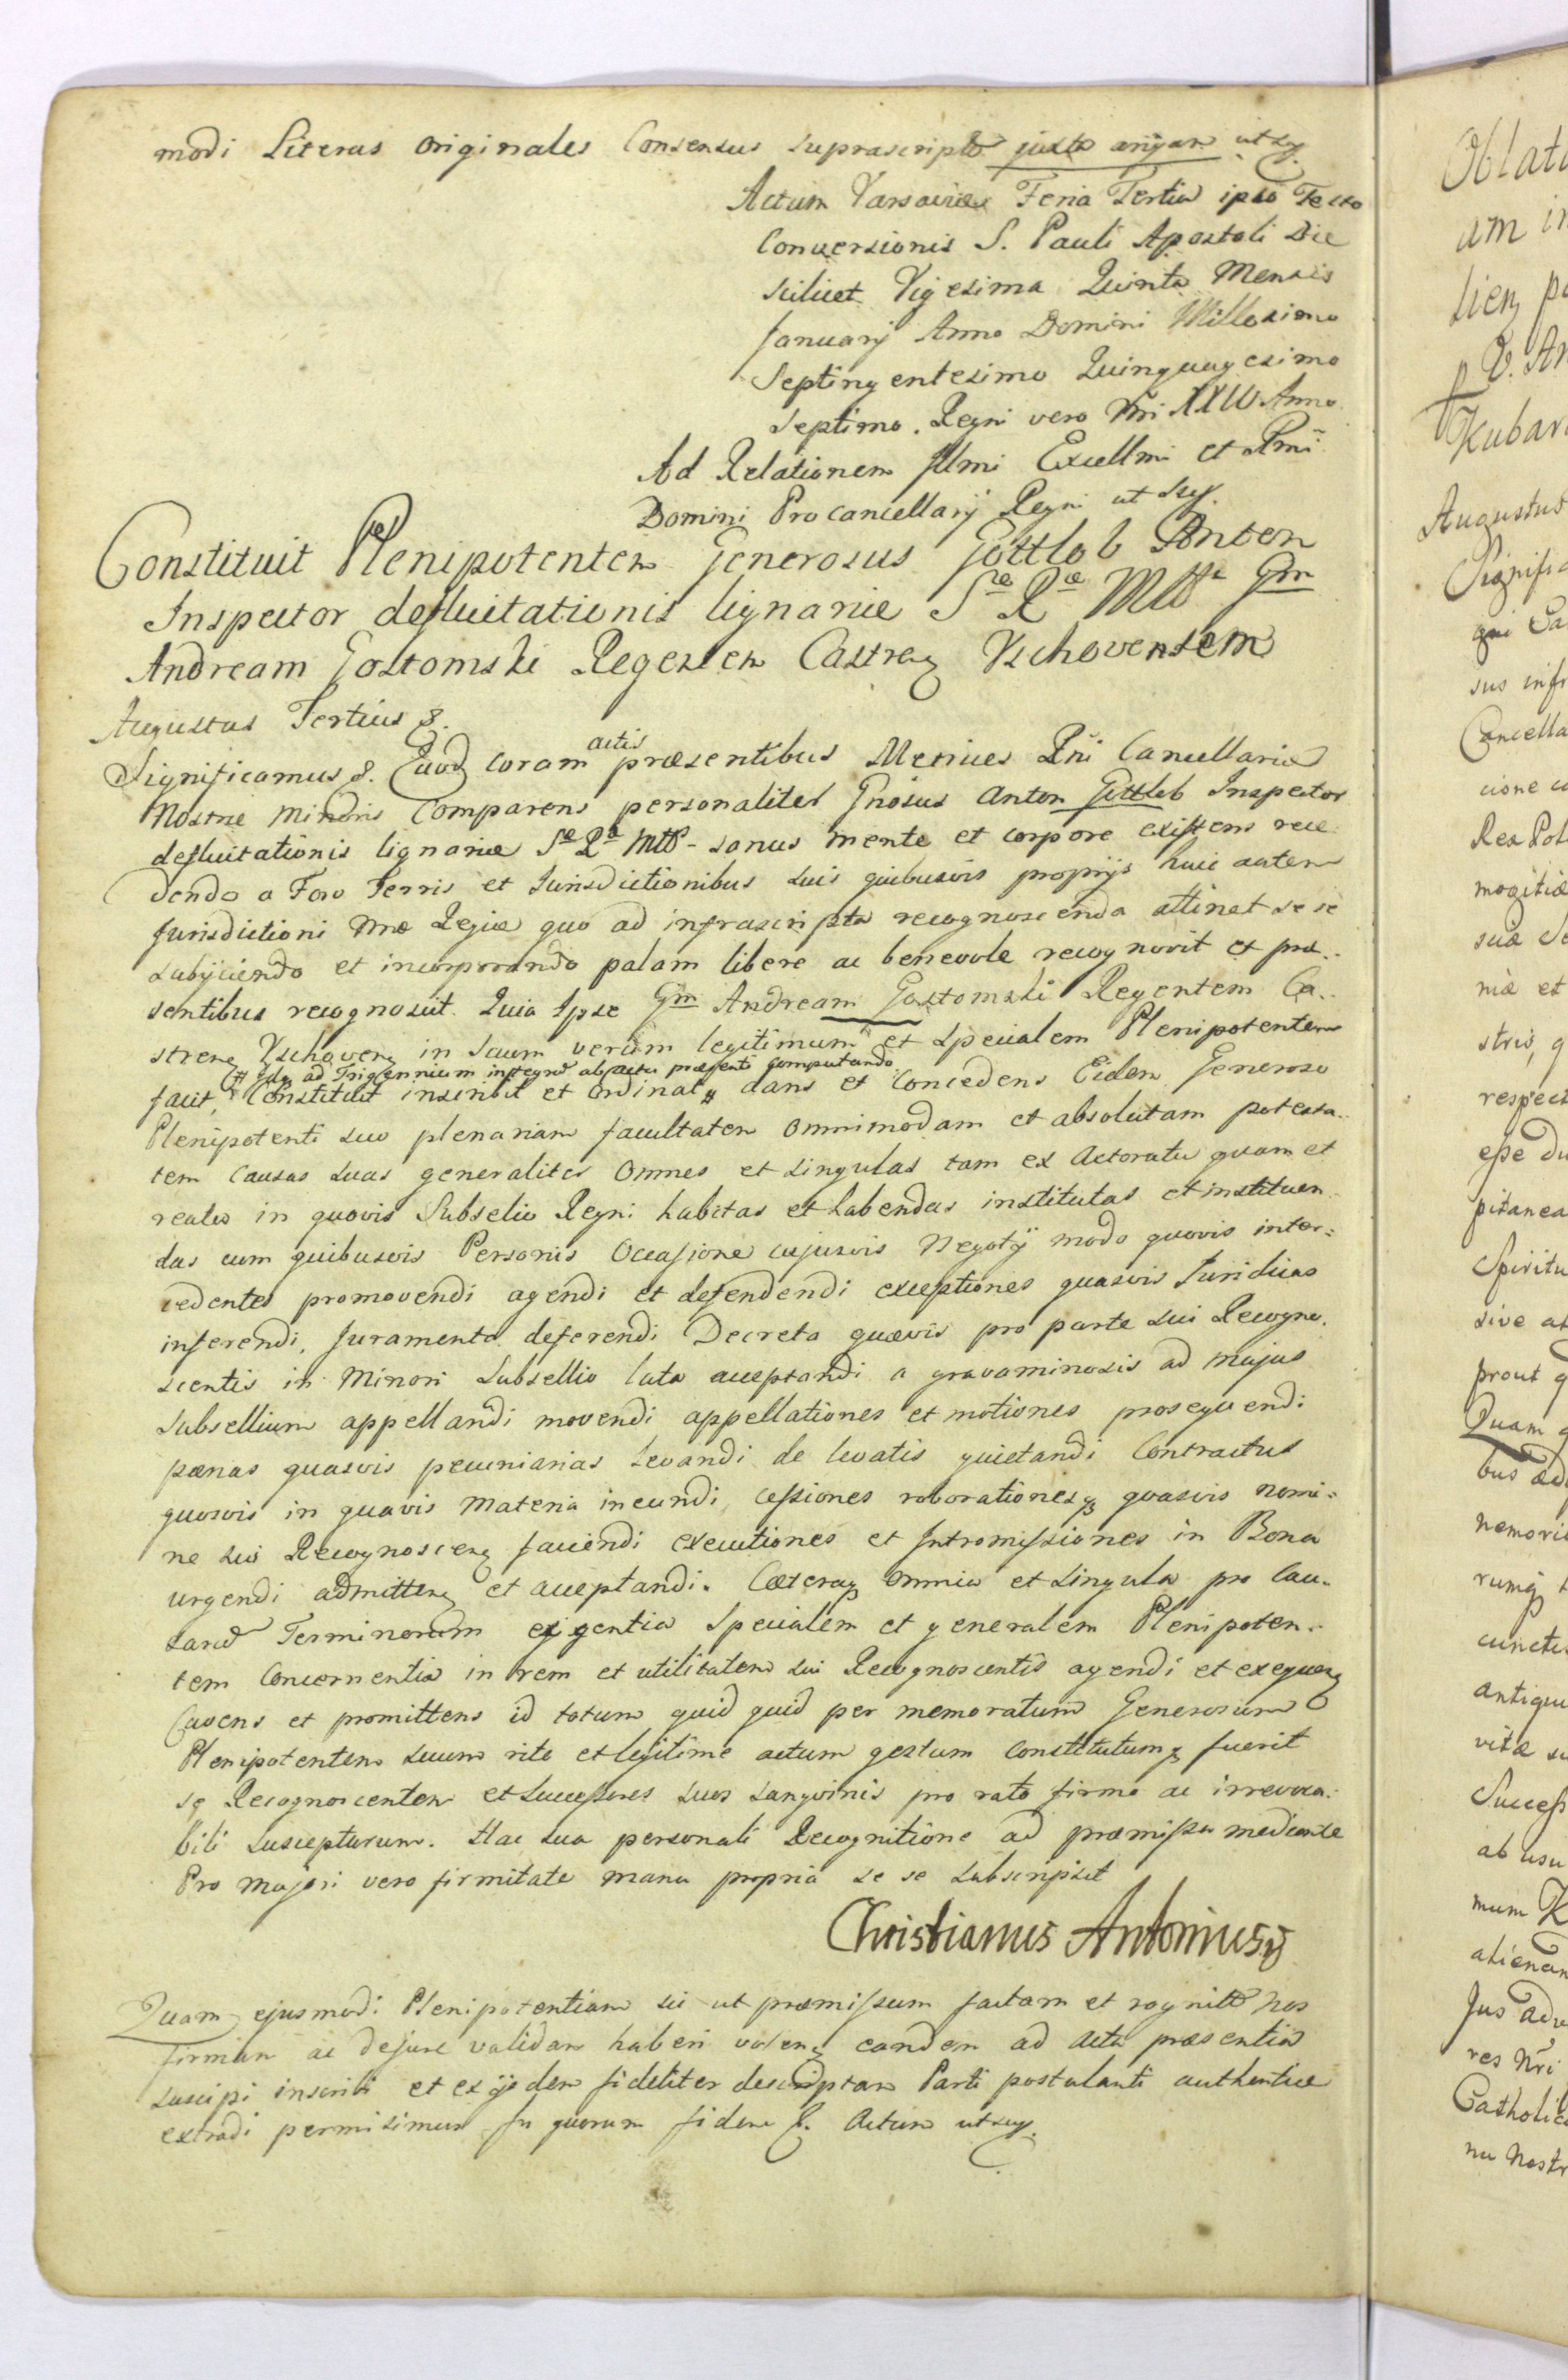 modi Literas Originales Consensus suprascripto justa
Actum Varsaviæ Feria Tertia ipso Festo
Conversionis S. Pauli Apostoli Die
scilicet Vigesima Quinta Mensis
Januarij Anno Domini Millesimo
Septingentesimo Quinquagesimo
Septimo. Regni vero Nri Anno
Ad Relationem Illmi Excellmi et Rmi
Domini Procancellarij Regni ut
Constituit Plenipotentem Generosus Gottlob Anton
Inspector defluitationis lignariæ Sæ Ræ Mttis Gm
Andream Gostomski Regentem Castreñ Vschovensem
Augustus Tertius &.
Significamus &. Quod coram actis præsentibus Metrices Rñi Cancellariæ
Nostræ Minoris Comparens personaliter Gñosus Anton Gottlob Inspector
defluitationis lignariæ Sæ Ræ Mttis sanus mente et corpore existens rece
dendo a Foro Terris et Jurisdictionibus suis quibusvis proprijs huic autem
Jurisdictioni Nræ Regiæ quo ad infrascripta recognoscenda attinet se se
subijciendo et incorporando palam libere ac benevole recognovit et præ-
sentibus recognoscit. Quia Ipse Gm Andream Gostomski Regentem Ca-
streñ Vschoveñ in Suum verum legitimum et specialem Plenipotentem
# Idq ad Trigennium integrum ab actu præsenti Computando
facit, Constituit inscribit et Ordinat # dans et Concedens Eidem Generoso
Plenipotenti suo plenariam facultatem Omnimodam et absolutam potesta-
tem Causas suas generaliter Omnes et singulas tam ex Actoratu quam et
reatu in quovis Subselio Regni habitas et habendas institutas et instituen-
das cum quibusvis Personis Occasione cujusvis Negotij modo quovis inter=
cedentes promovendi agendi et defendendi exceptiones quasvis Juridicas
inferendi, Juramenta deferendi Decreta quævis pro parte sui Recogno-
scentis in Minori Subsellio lata acceptandi a gravaminosis ad Majus
Subsellium appellandi movendi appellationes et motiones prosequendi
pænas quasvis pecuniarias levandi de levatis quietandi Contractus
quosvis in quavis Materia ineundi, cessiones roborationesq quasvis nomi=
ne sui Recognosceñ faciendi executiones et Intromissiones in Bona
urgendi admitteñ et acceptandi. Cæteraq Omnia et singula pro Cau-
saru Terminorum exigentia specialem et generalem Plenipoten-
tem Concernentia in rem et utilitatem sui Recognoscentis agendi et exequeñ
Cavens et promittens id totum quid quid per memoratum Generosum
Plenipotentem suum rite et legitime actum gestum Constitutumq fuerit
se Recognoscentem et Successores suos sanguinis pro rato firmo ac irrevoca-
bili suscepturum. Hac sua personali Recognitione ad præmissa mediante
Pro Majori vero firmitate manu propria se se subscripsit
Christianus Antonius
Quam ejusmodi Plenipotentiam sic ut præmissum factam et Nos
firmam ac de jure validam haberi voleñ eandem ad Acta præsentia
suscipi inscribi et ex ijsdem fideliter descriptam Parti postulanti authentice
extradi permisimus In quorum fidem &. Actum ut
Oblata
Augustus
Cancella
Rex Pol
respect
Quam
cunctis
antiqu
Success
ab usu
mum
Catholic